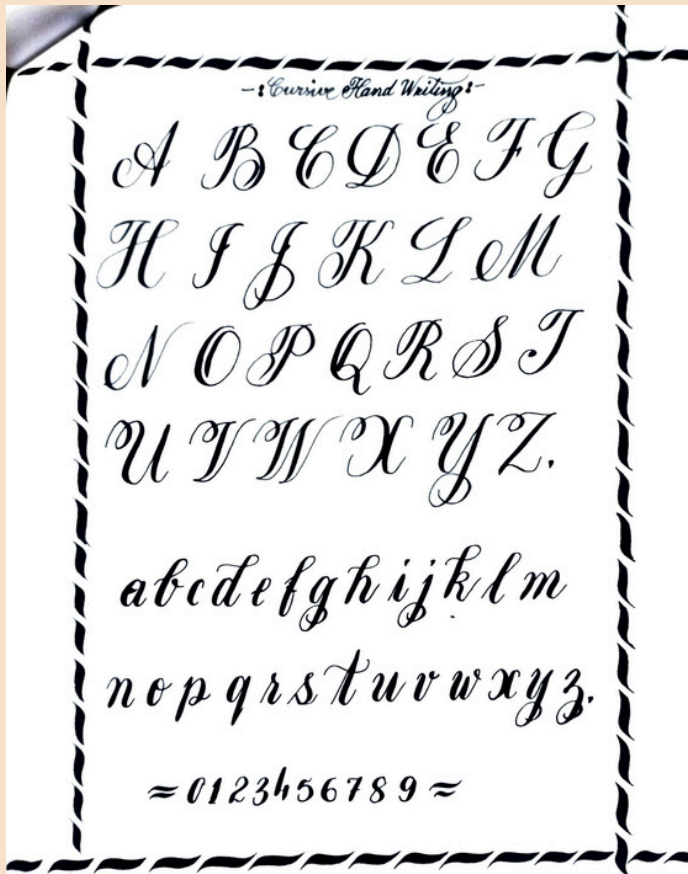 -:Cursive Hand Writing:-
A B C D E F G
H I J K L M
N O P Q R S T
U V W X Y Z.
a b c d e f g h i j k l m
n o p q r s t u v w x y z.
≈ 0 1 2 3 4 5 6 7 8 9 ≈